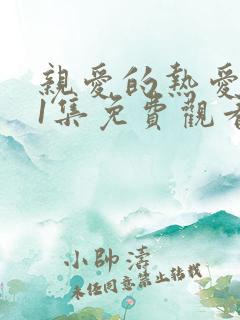 親愛的熱愛
1集免費觀看
小帥濤
未經同意禁止轉載